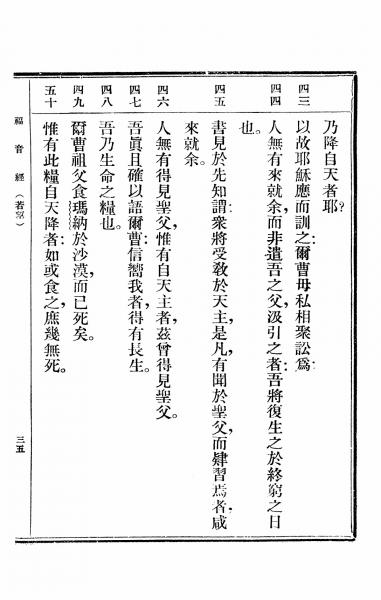 乃降自天者耶？
四三 以故耶穌應而訓之：爾曹毋私相聚訟爲；
四四 人無有來就余，而非遣吾之父汲引之者；吾將復生之於終窮之日
也。
四五 書見於先知謂：衆將受敎於天主，是凡有聞於聖父而肄習焉者，咸
來就余。
四六 人無有得見聖父，惟有自天主者，茲曾得見聖父。
四七 吾眞且確以語爾曹：信嚮我者，得有長生。
四八 吾乃生命之糧也。
四九 爾曹祖父食瑪納於沙漠，而已死矣。
五十 惟有此糧自天降者：如或食之，庶幾無死。
福音經（若望）
三五